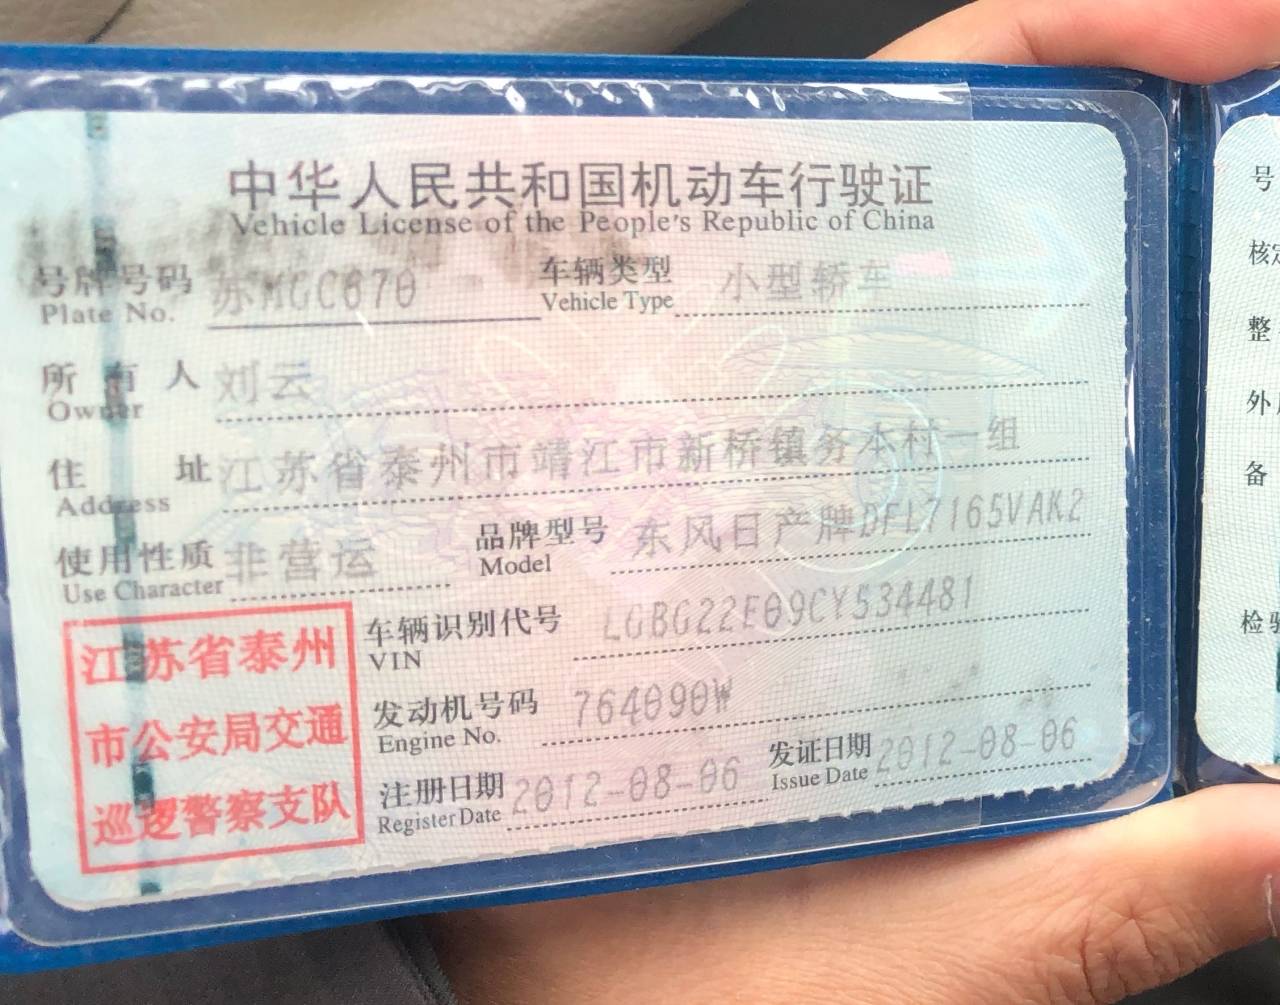 中华人民共和国机动车行驶证
Vehicle License of the People's Republic of China
号牌号码 苏MGC670 车辆类型 小型轿车
Plate No. Vehicle Type
所有人 刘云
Owner
住址 江苏省泰州市靖江市新桥镇务本村一组
Address
使用性质 非营运 品牌型号 东风日产牌DFL7165VAK2
Use Character Model
江苏省泰州
市公安局交通
巡逻警察支队
车辆识别代号 LGBG22E09CY534481
VIN
发动机号码 764090W
Engine No.
注册日期 2012-08-06 发证日期 2012-08-06
Register Date Issue Date
号
核定
整
外
备
检验